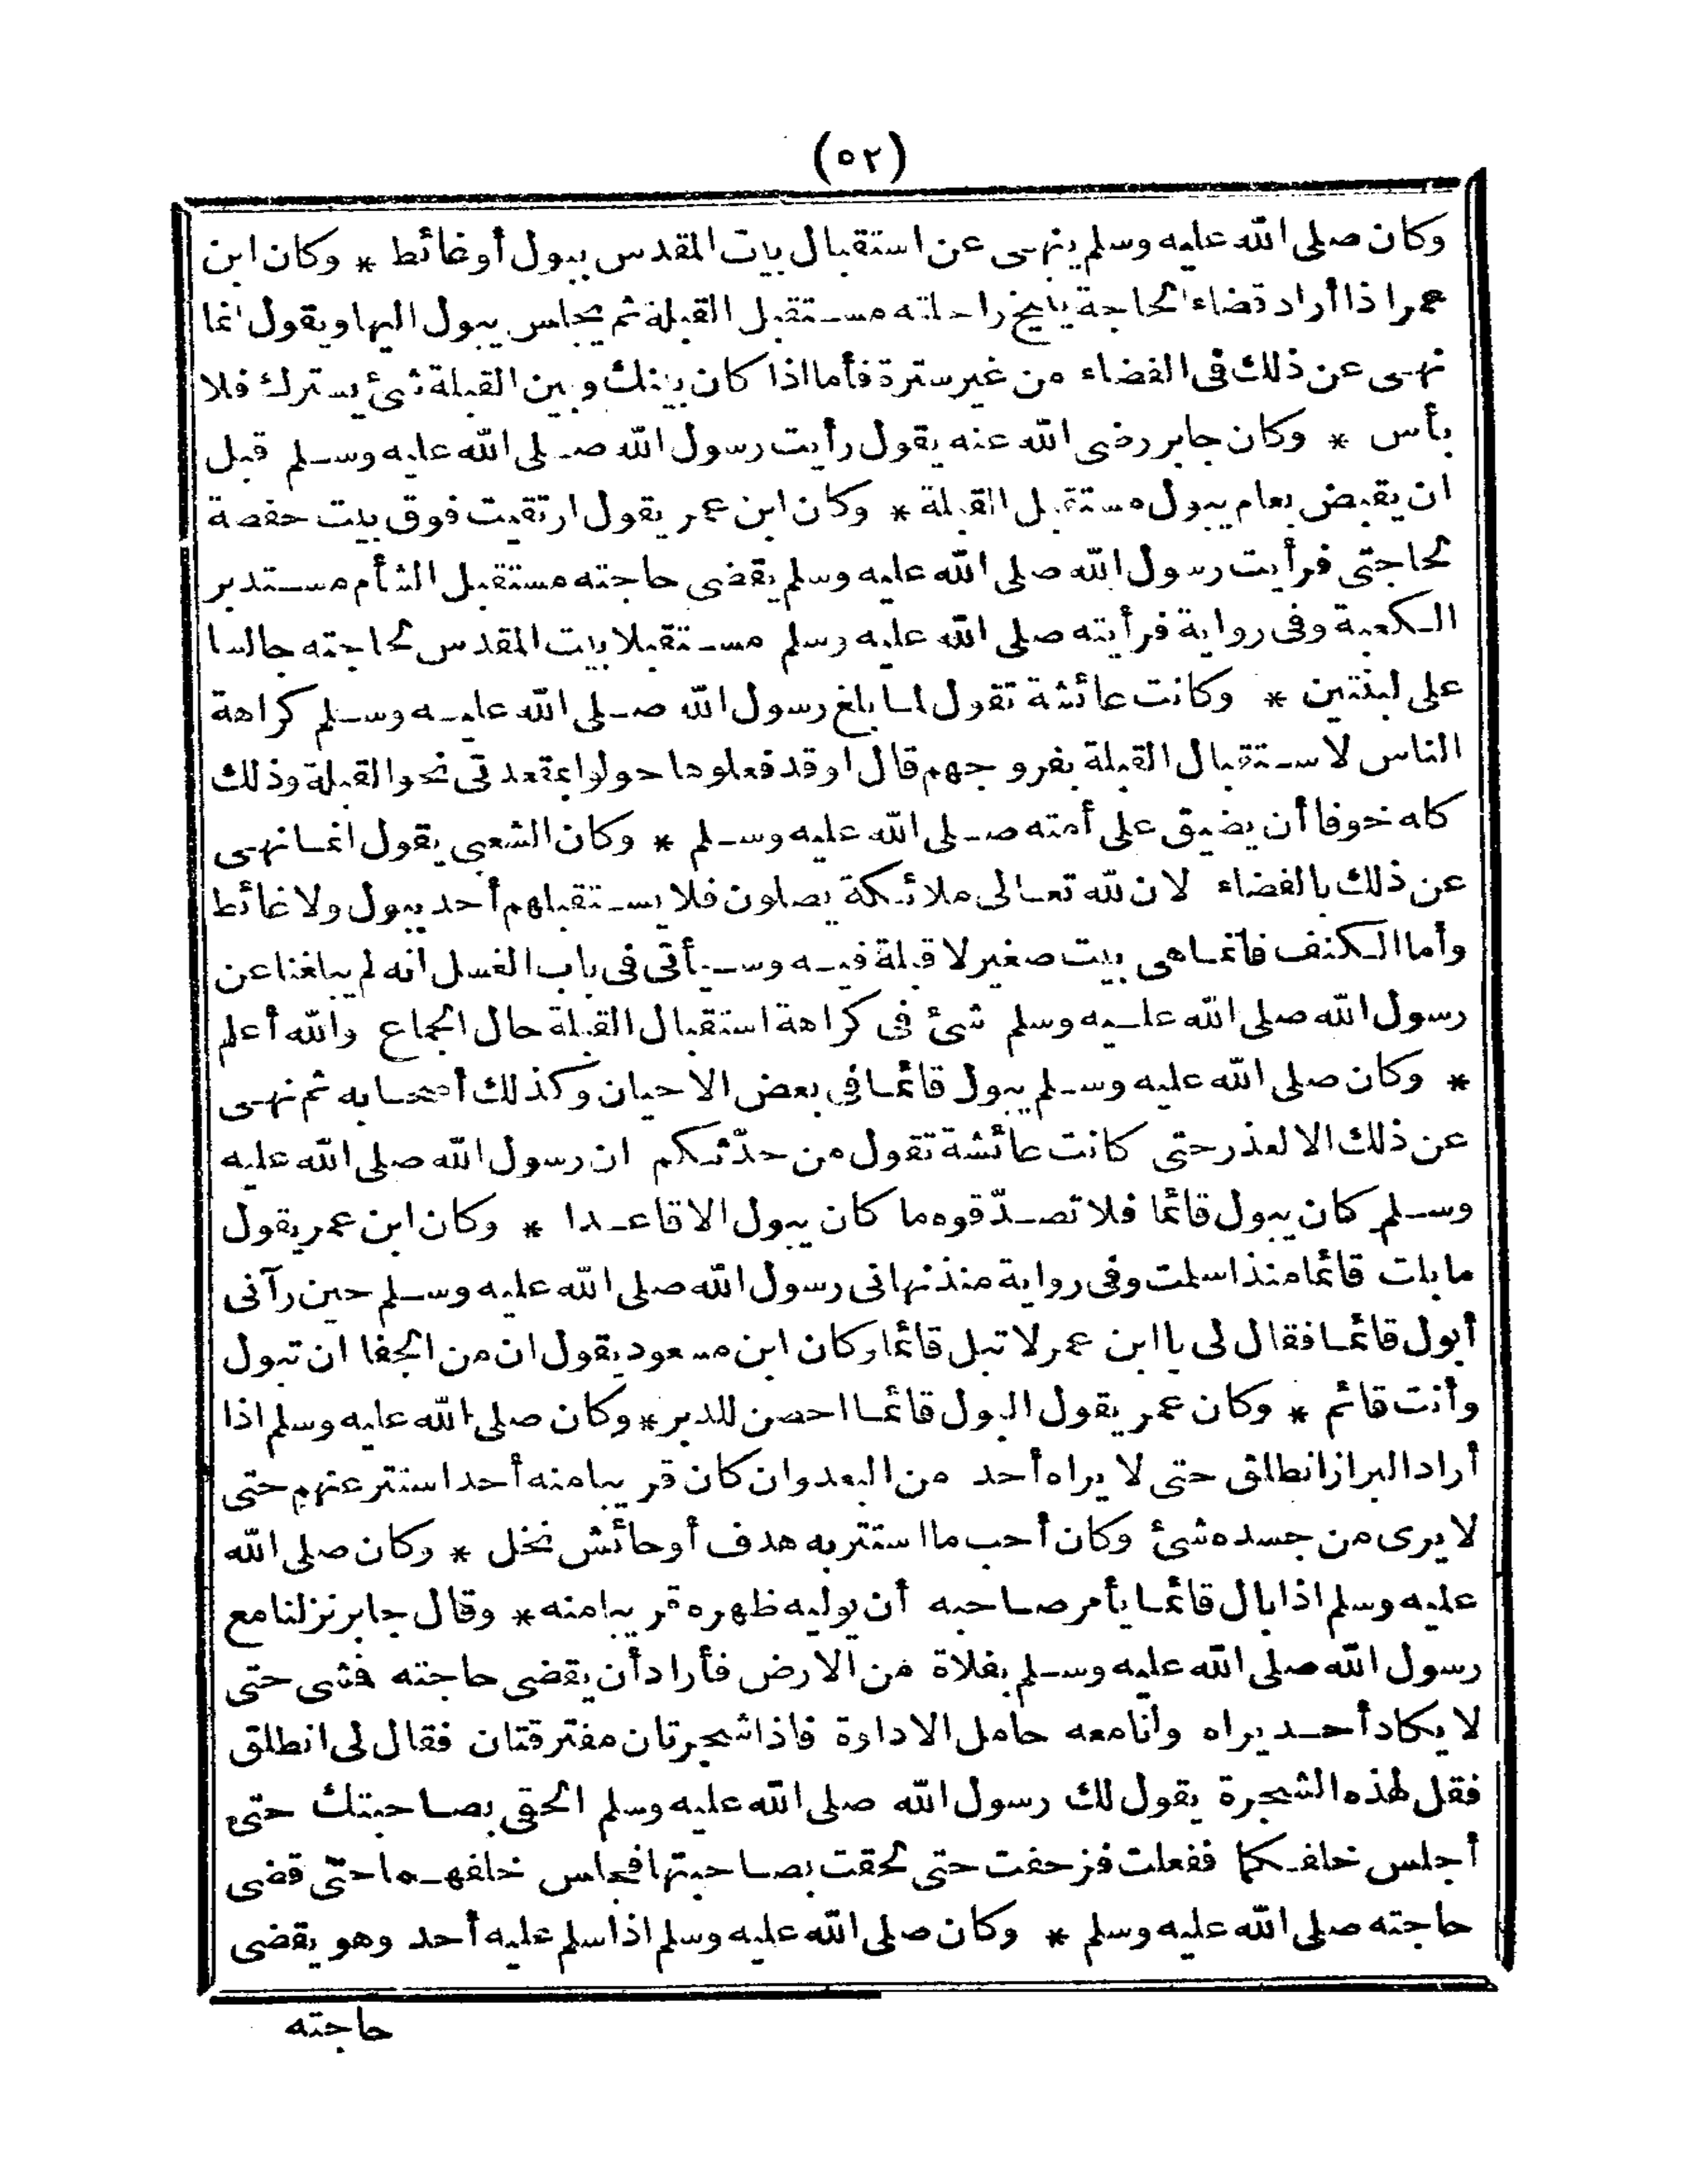 (٥٢)
وكان صلى الله عليه وسلم ينهى عن استقبال بيت المقدس ببول أو غائط * وكان ابن
عمر اذا أراد قضاء الحاجة ينيخ راحلته مستقبل القبلة ثم يجلس يبول اليها ويقول انما
نهى عن ذلك فى الفضاء من غير سترة فأما اذا كان بينك وبين القبلة شئ يسترك فلا
بأس * وكان جابر رضى الله عنه يقول رأيت رسول الله صلى الله عليه وسلم قبل
ان يقبض بعام يبول مستقبل القبلة * وكان ابن عمر يقول ارتقيت فوق بيت حفصة
لحاجتى فرأيت رسول الله صلى الله عليه وسلم يقضى حاجته مستقبل الشأم مستدبر
الكعبة وفى رواية فرأيته صلى الله عليه وسلم مستقبلا بيت المقدس لحاجته جالسا
على لبنتين * وكانت عائشة تقول لما بلغ رسول الله صلى الله عليه وسلم كراهة
الناس لاستقبال القبلة بفروجهم قال اوقد فعلوها حولوا بمقعدتى نحو القبلة وذلك
كله خوفا أن يضيق على أمته صلى الله عليه وسلم * وكان الشعبى يقول انما نهى
عن ذلك بالفضاء لان لله تعالى ملائكة يصلون فلا يستقبلهم أحد ببول ولا غائط
وأما الكنف فانما هى بيت صغير لا قبلة فيه وسيأتى فى باب الغسل انه لم يبلغنا عن
رسول الله صلى الله عليه وسلم شئ فى كراهة استقبال القبلة حال الجماع والله أعلم
* وكان صلى الله عليه وسلم يبول قائما فى بعض الاحيان وكذلك أصحابه ثم نهى
عن ذلك الا لعذر حتى كانت عائشة تقول من حدّثكم ان رسول الله صلى الله عليه
وسلم كان يبول قائما فلا تصدّقوه ما كان يبول الا قاعدا * وكان ابن عمر يقول
ما بلت قائما منذ اسلمت وفى رواية منذ نهانى رسول الله صلى الله عليه وسلم حين رآنى
أبول قائما فقال لى يا ابن عمر لا تبل قائما وكان ابن مسعود يقول ان من الجفا ان تبول
وأنت قائم * وكان عمر يقول البول قائما احصن للدبر * وكان صلى الله عليه وسلم اذا
أراد البراز انطلق حتى لا يراه أحد من البعد وان كان قريبا منه أحد استتر عنهم حتى
لا يرى من جسده شئ وكان أحب ما استتر به هدف أو حائش نخل * وكان صلى الله
عليه وسلم اذا بال قائما يأمر صاحبه أن يوليه ظهره قريبا منه * وقال جابر نزلنا مع
رسول الله صلى الله عليه وسلم بفلاة من الارض فأراد أن يقضى حاجته فمشى حتى
لا يكاد أحد يراه وأنا معه حامل الاداوة فاذا شجرتان مفترقتان فقال لى انطلق
فقل لهذه الشجرة يقول لك رسول الله صلى الله عليه وسلم الحقى بصاحبتك حتى
أجلس خلفكما ففعلت فزحفت حتى لحقت بصاحبتها فجلس خلفهما حتى قضى
حاجته صلى الله عليه وسلم * وكان صلى الله عليه وسلم اذا سلم عليه أحد وهو يقضى
حاجته